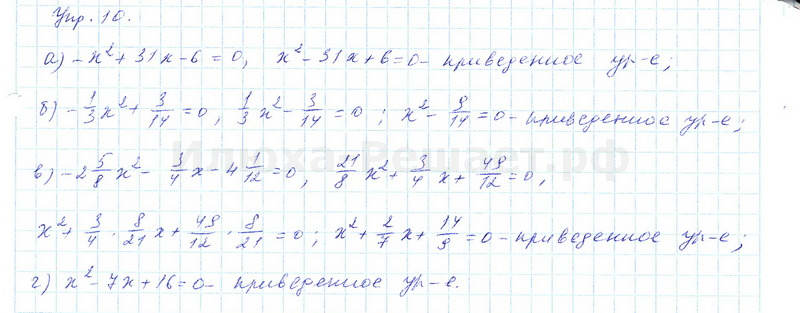 Упр. 10.
а) -x² + 31x - 6 = 0, x² - 31x + 6 = 0 - приведенное ур-е;
б) -1/3 x² + 3/14 = 0, 1/3 x² - 3/14 = 0; x² - 9/14 = 0 - приведенное ур-е;
в) -2 5/8 x² - 3/4 x - 4 1/12 = 0, 21/8 x² + 3/4 x + 49/12 = 0,
x² + 3/4 · 8/21 x + 49/12 · 8/21 = 0; x² + 2/7 x + 14/9 = 0 - приведенное ур-е;
г) x² - 7x + 16 = 0 - приведенное ур-е.
Илюха-Решаст.рф